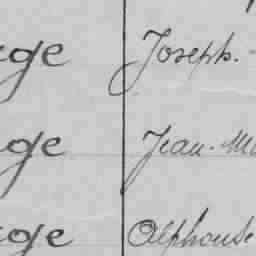 ge Joseph.
ge Jean-M
ge Alphonse